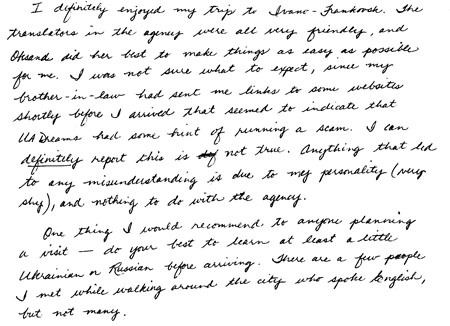 I definitely enjoyed my trip to Ivano-Frankovsk. The
translators in the agency were all very friendly, and
Oksana did her best to make things as easy as possible
for me. I was not sure what to expect, since my
brother-in-law had sent me links to some websites
shortly before I arrived that seemed to indicate that
UADreams had some hint of running a scam. I can
definitely report this is not true. Anything that led
to any misunderstanding is due to my personality (very
shy), and nothing to do with the agency.
One thing I would recommend to anyone planning
a visit — do your best to learn at least a little
Ukrainian or Russian before arriving. There are a few people
I met while walking around the city who spoke English,
but not many.